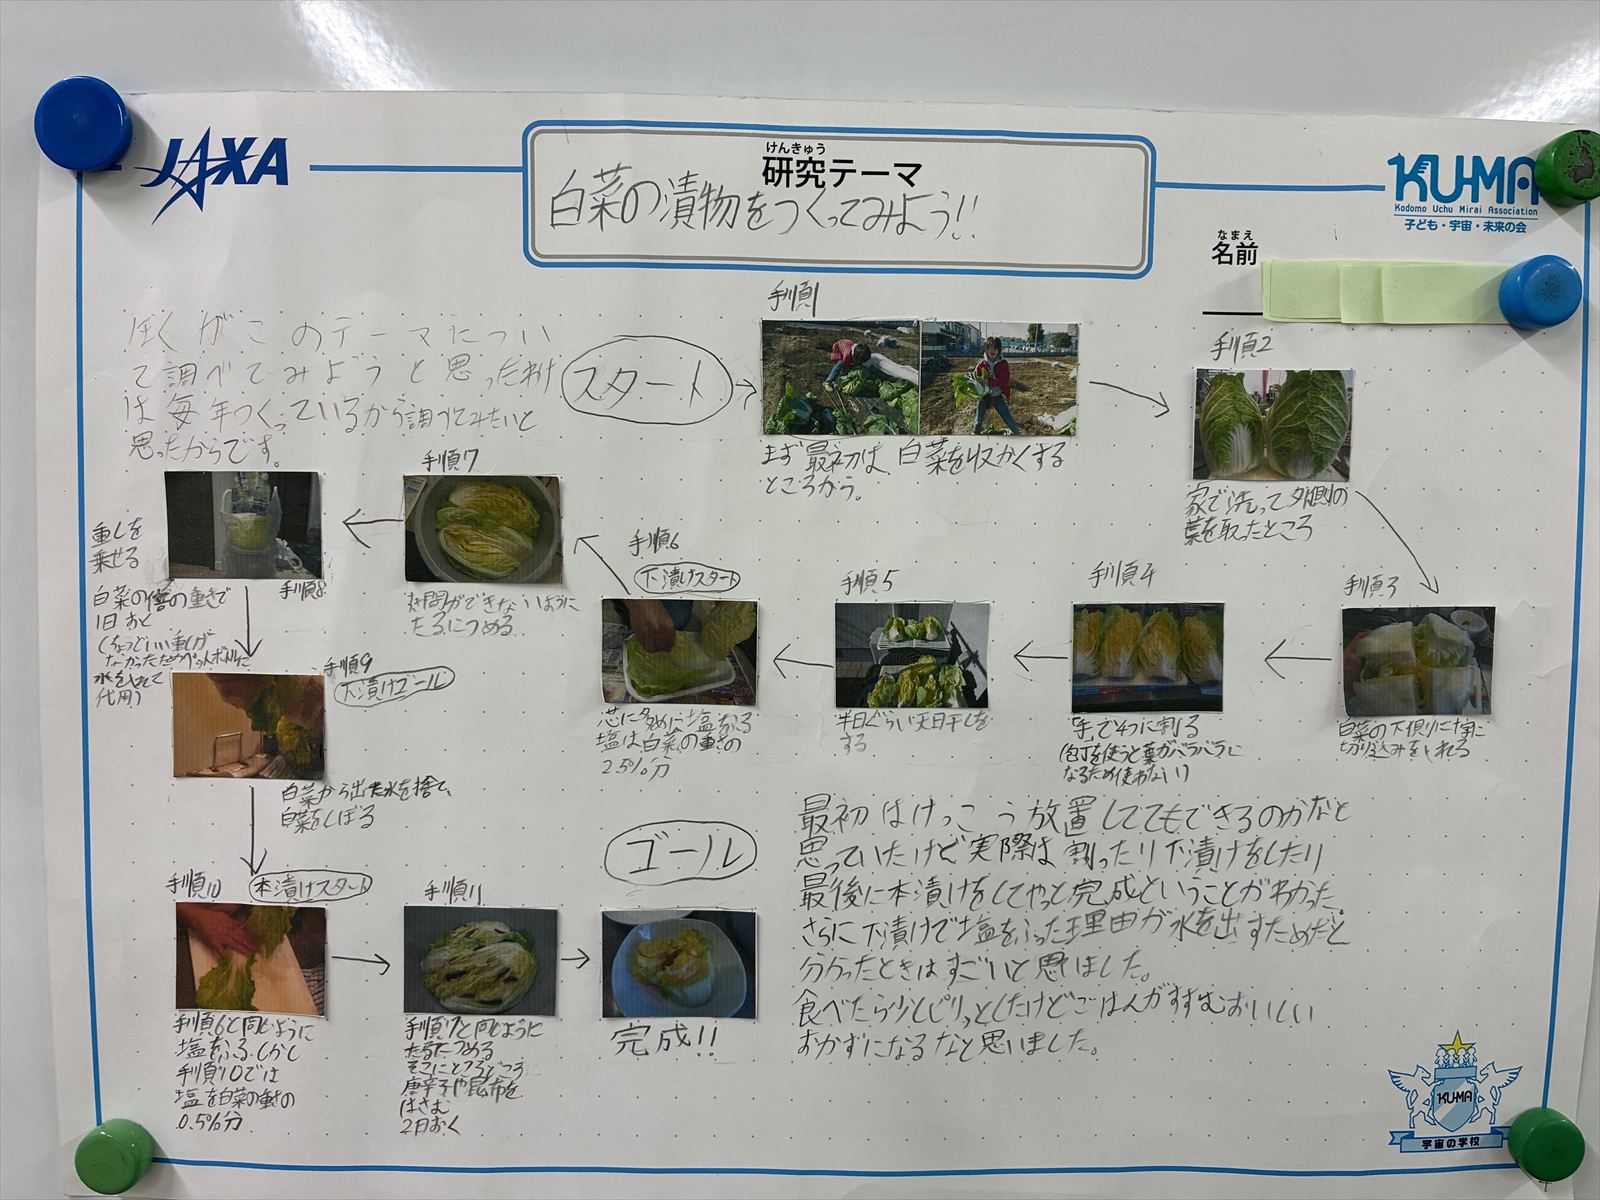 JAXA
けんきゅう
研究テーマ
白菜の漬物をつくってみよう!!
KU-MA
Kodomo Uchu Mirai Association
子ども・宇宙・未来の会
なまえ
名前
ぼくがこのテーマについ
て調べてみようと思ったわけ
は毎年つくっているから調べてみたいと
思ったからです。
スタート
手順1
まず最初は、白菜を収かくする
ところから。
手順2
家で洗って外側の
葉を取ったところ
手順3
白菜の下側に十字に
切り込みをいれる
手順4
手で4つに割る
(包丁を使うと葉がバラバラに
なるため使わない)
手順5
半日ぐらい天日干しを
する
手順6
下漬けスタート
芯に多めに塩をふる
塩は白菜の重さの
2.5%分
手順7
すき間ができないように
たるにつめる
手順8
重しを
乗せる
白菜の倍の重さで
1日おく
(ちょうどいい重しが
なかったためペットボトルに
水を入れて
代用)
手順9
下漬けゴール
白菜から出た水を捨て、
白菜をしぼる
手順10
本漬けスタート
手順6と同じように
塩をふる。しかし
手順10では
塩を白菜の重さの
0.5%分
手順11
手順7と同じように
たるにつめる
そこにところどころ
唐辛子や昆布を
はさむ
2日おく
ゴール
完成!!
最初はけっこう放置しててもできるのかなと
思っていたけど実際は割ったり下漬けをしたり
最後に本漬けをしてやっと完成ということがわかった。
さらに下漬けで塩をふった理由が水を出すためだと
分かったときはすごいと思いました。
食べたら少しピリッとしたけどごはんがすすむおいしい
おかずになるなと思いました。
KU-MA
宇宙の学校